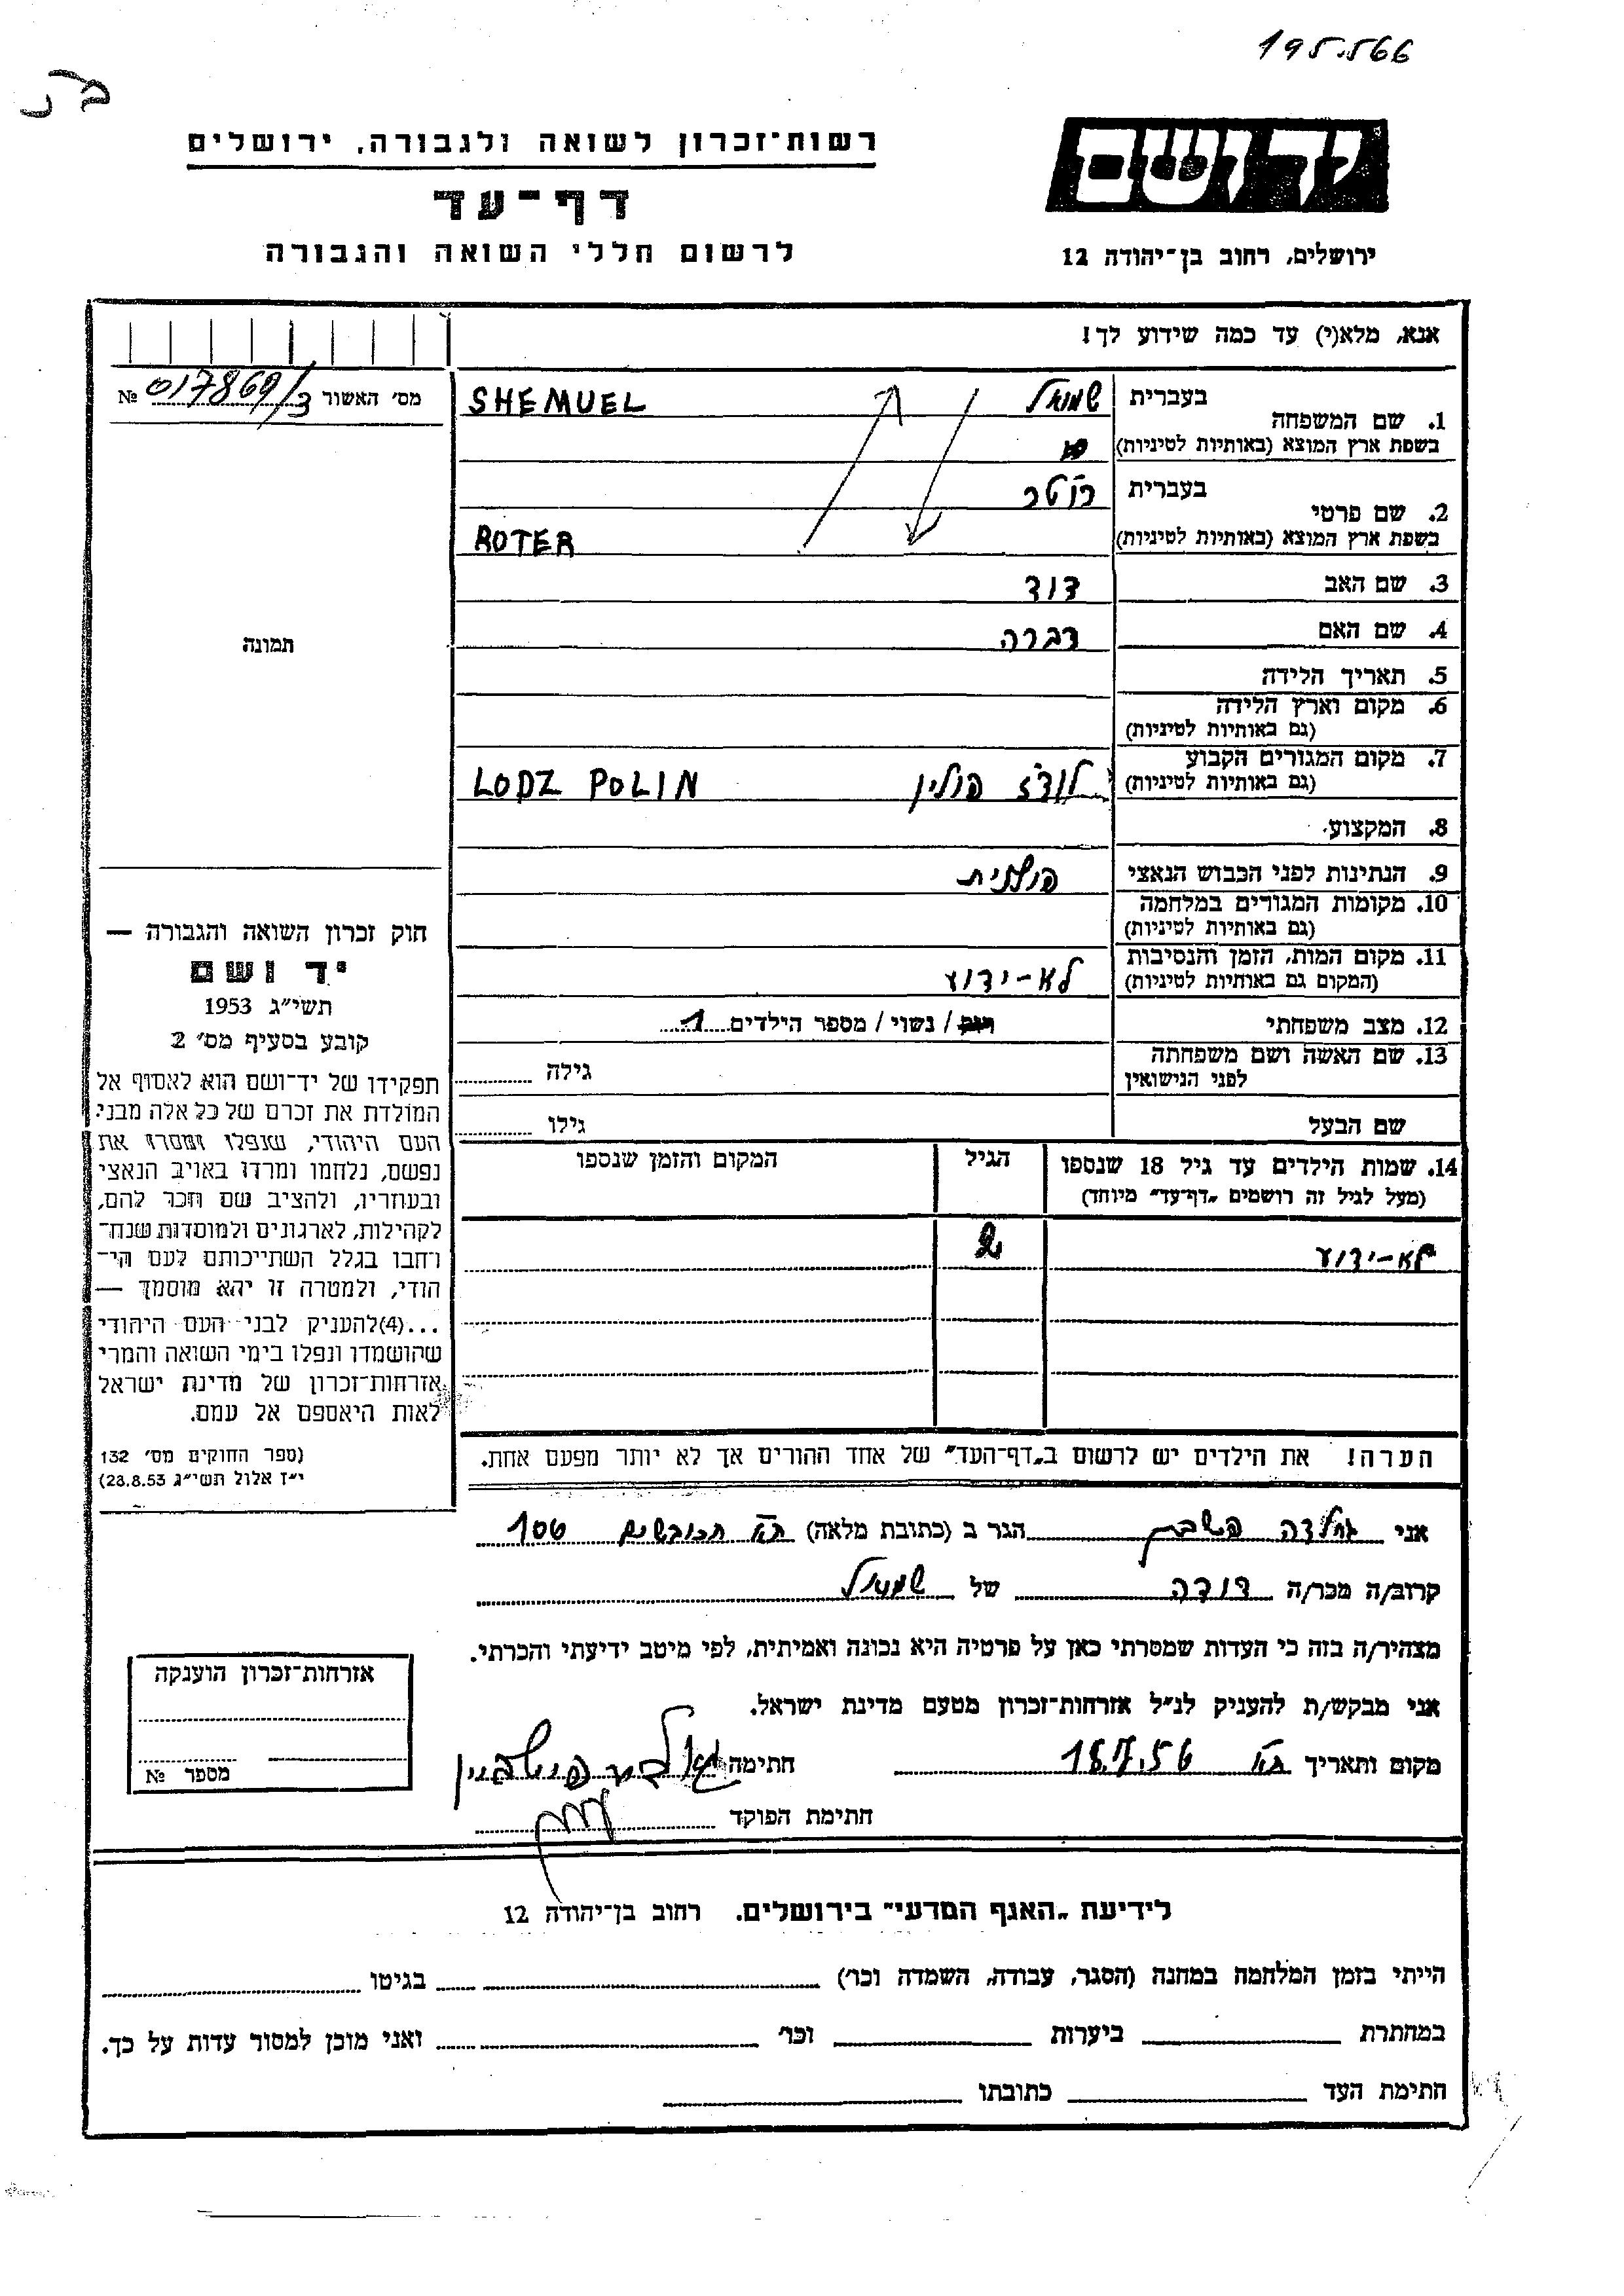 195.566
רשות־זכרון לשואה ולגבורה, ירושלים
יד ושם
דף־עד
לרשום חללי השואה והגבורה
ירושלים, רחוב בן־יהודה 12
אנא, מלא(י) עד כמה שידוע לך!
מס׳ האשור 017869/3 №
בעברית שמואל SHEMUEL
1. שם המשפחה
בשפת ארץ המוצא (באותיות לטיניות)
בעברית רוטר
2. שם פרטי
בשפת ארץ המוצא (באותיות לטיניות) ROTER
3. שם האב דוד
4. שם האם דברה
תמונה
5. תאריך הלידה
6. מקום וארץ הלידה
(גם באותיות לטיניות)
7. מקום המגורים הקבוע
(גם באותיות לטיניות) לודז פולין LODZ POLIN
8. המקצוע
9. הנתינות לפני הכבוש הנאצי פולנית
10. מקומות המגורים במלחמה
(גם באותיות לטיניות)
11. מקום המות, הזמן והנסיבות
(המקום גם באותיות לטיניות) לא-ידוע
12. מצב משפחתי רווק / נשוי / מספר הילדים 1
13. שם האשה ושם משפחתה
לפני הנישואין גילה
שם הבעל גילו
14. שמות הילדים עד גיל 18 שנספו הגיל המקום והזמן שנספו
(מעל לגיל זה רושמים „דף־עד״ מיוחד)
לא-ידוע 2
הערה! את הילדים יש לרשום ב„דף־העד״ של אחד ההורים אך לא יותר מפעם אחת.
חוק זכרון השואה והגבורה —
יד ושם
תשי״ג 1953
קובע בסעיף מס׳ 2
תפקידו של יד־ושם הוא לאסוף אל
המולדת את זכרם של כל אלה מבני
העם היהודי, שנפלו ומסרו את
נפשם, נלחמו ומרדו באויב הנאצי
ובעוזריו, ולהציב שם וזכר להם,
לקהילות, לארגונים ולמוסדות שנח־
רבו בגלל השתייכותם לעם הי־
הודי, ולמטרה זו יהא מוסמך —
...(4) להעניק לבני העם היהודי
שהושמדו ונפלו בימי השואה והמרי
אזרחות־זכרון של מדינת ישראל
לאות היאספם אל עמם.
(ספר החוקים מס׳ 132
י״ז אלול תשי״ג 28.8.53)
אני גולדה הגר ב (כתובת מלאה) ת"א הכובשים 106
קרוב/ה מכר/ה דודה של שמואל
מצהיר/ה בזה כי העדות שמסרתי כאן על פרטיה היא נכונה ואמיתית, לפי מיטב ידיעתי והכרתי.
אני מבקש/ת להעניק לנ״ל אזרחות־זכרון מטעם מדינת ישראל.
מקום ותאריך ת"א 18.7.56 חתימה
חתימת הפוקד
אזרחות־זכרון הוענקה
מספר №
לידיעת „האגף המדעי״ בירושלים. רחוב בן־יהודה 12
הייתי בזמן המלחמה במחנה (הסגר, עבודה, השמדה וכר׳) בגיטו
במחתרת ביערות וכר׳ ואני מוכן למסור עדות על כך.
חתימת העד כתובתו